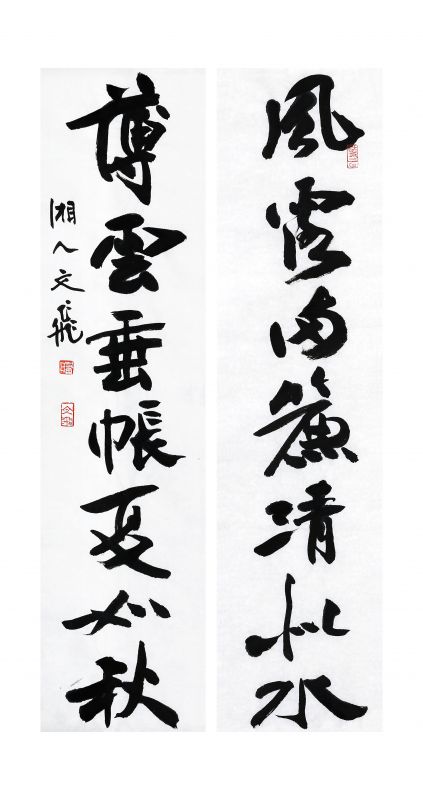 風露簾清似水
薄雲垂帳夏如秋
湘人文飛